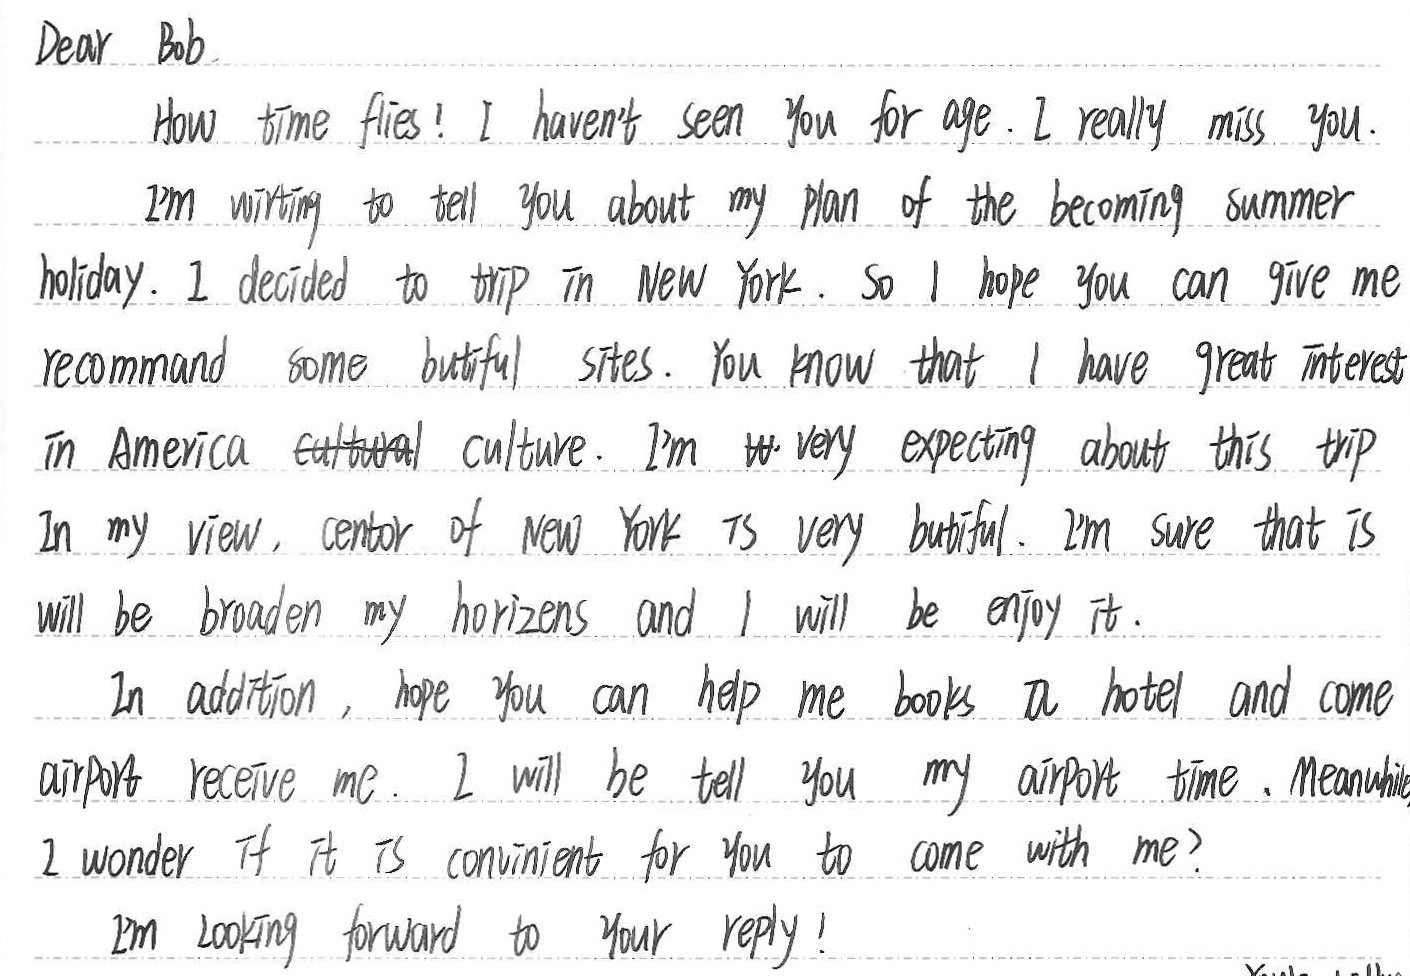 Dear Bob.
How time flies! I haven't seen you for age. I really miss you.
I'm wirting to tell you about my plan of the becoming summer
holiday. I decided to trip in New York. So I hope you can give me
recommand some butiful sites. You know that I have great interest
in America cultural culture. I'm very expecting about this trip
In my view, centor of New York is very butiful. I'm sure that is
will be broaden my horizens and I will be enjoy it.
In addition, hope you can help me books a hotel and come
airport receive me. I will be tell you my airport time. Meanwhile,
I wonder if it is convinient for you to come with me?
I'm Looking forward to your reply!